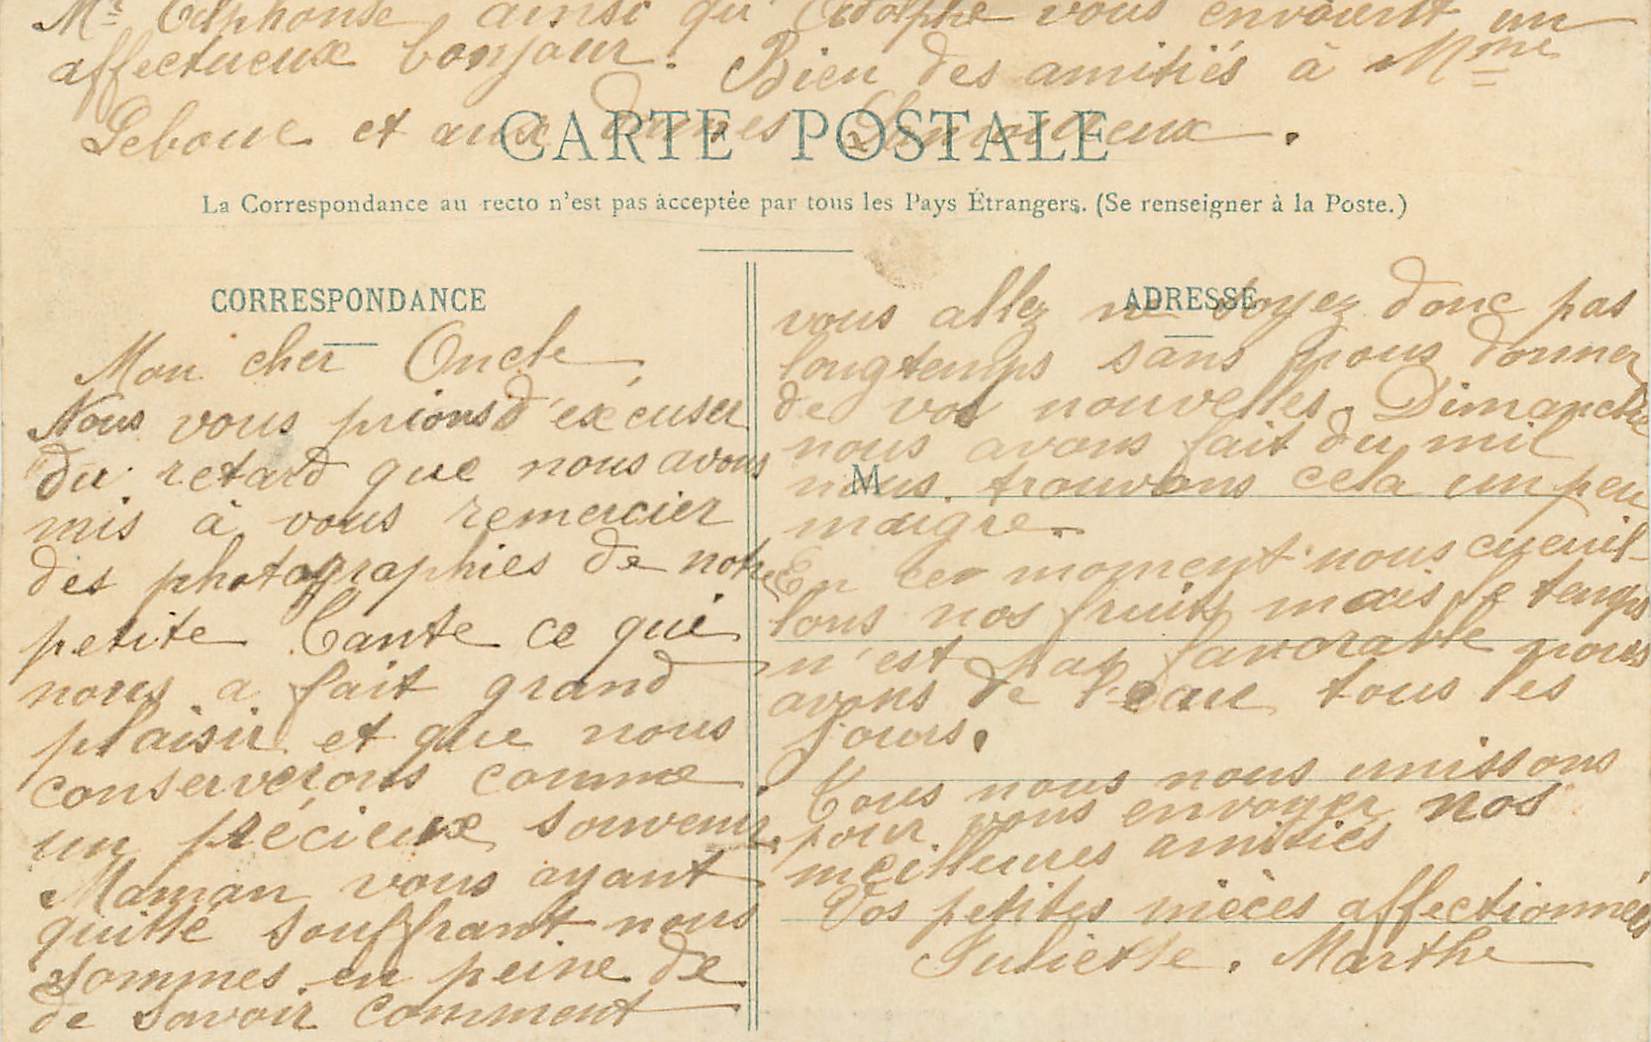 Mr Alphonse, ainsi qu'Adolphe vous envoient un
affectueux bonjour. Bien des amitiés à Mme
Leboue et aux Dames Lamoureux.
CARTE POSTALE
La Correspondance au recto n'est pas acceptée par tous les Pays Étrangers. (Se renseigner à la Poste.)
CORRESPONDANCE
Mon cher Oncle
Nous vous prions d'excuser
du retard que nous avons
mis à vous remercier
des photographies de notre
petite Tante ce qui
nous a fait grand
plaisir et que nous
conserverons comme
un précieux souvenir.
Maman vous ayant
quitté souffrant nous
sommes en peine de
de savoir comment
ADRESSE
vous allez ne soyez donc pas
longtemps sans nous donner
de vos nouvelles. Dimanche
nous avons fait du mil
M
nous trouvons cela un peu
maigre.
En ce moment nous cueuil-
lons nos fruits mais le temps
n'est pas favorable nous
avons de l'eau tous les
jours.
Tous nous nous unissons
pour vous envoyer nos
meilleures amitiés
Vos petites nièces affectionnées
Juliette. Marthe